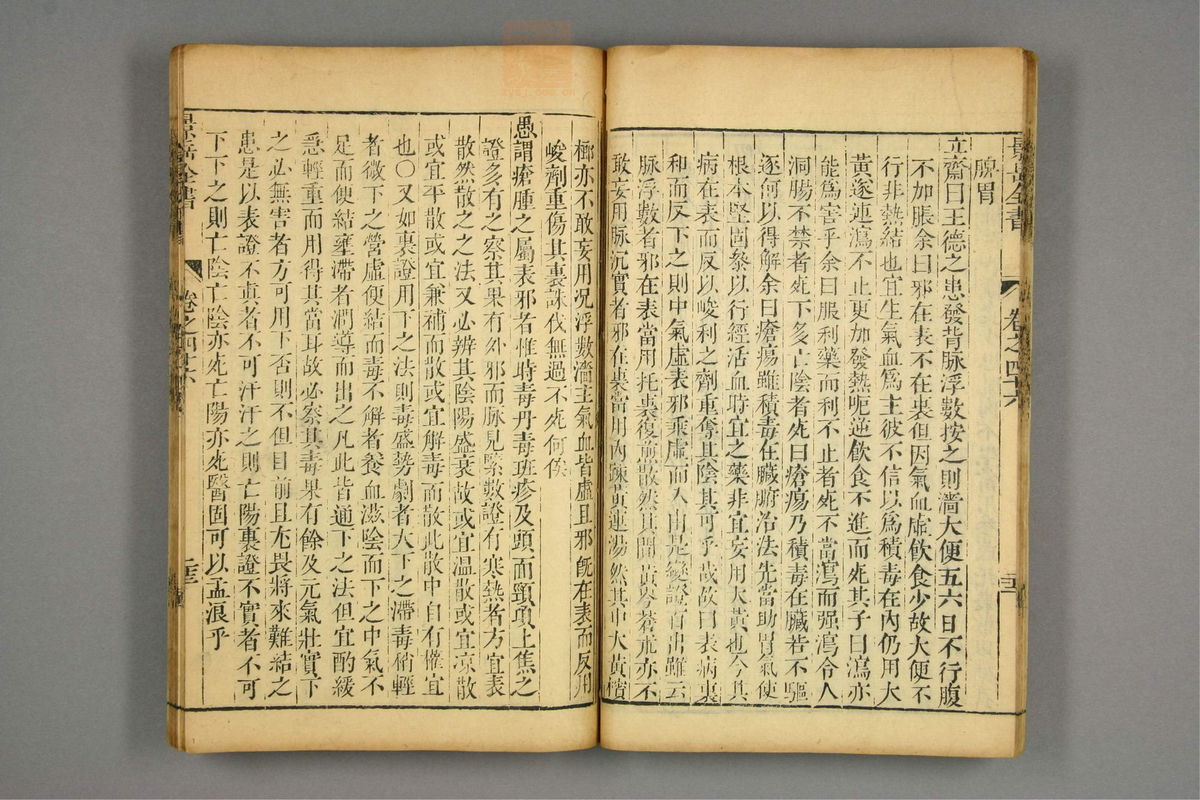 景岳全書
卷之四十六
腴胃
立齋曰王德之患發背脉浮數按之則濇大便五六日不行腹
不加脹余曰邪在表不在裏但因氣血虛飲食少故大便不
行非熱結也宜生氣血爲主彼不信以爲積毒在內仍用大
黃遂連瀉不止更加發熱呃逆飲食不進而死其子曰瀉亦
能爲害乎余曰服利藥而利不止者死不當瀉而强瀉令人
洞腸不禁者死下多亡陰者死曰瘡瘍乃積毒在臟若不驅
逐何以得解余曰瘡瘍雖積毒在臟腑治法先當助胃氣使
根本堅固參以行經活血時宜之藥非宜妄用大黃也今其
病在表而反以峻利之劑重奪其陰其可乎哉故曰表病裏
和而反下之則中氣虛表邪乘虛而入由是變證百出雖云
脉浮數者邪在表當用托裏復煎散然其間黃芩蒼朮亦不
敢妄用脉沉實者邪在裏當用內疎黃連湯然其中大黃檳
榔亦不敢妄用况浮數濇主氣血皆虛且邪既在表而反用
峻劑重傷其裏誅伐無過不死何俟
愚謂瘡腫之屬表邪者惟時毒丹毒班疹及頭面頸項上焦之
證多有之察其果有外邪而脉見緊數證有寒熱者方宜表
散然散之之法又必辨其陰陽盛衰故或宜温散或宜凉散
或宜平散或宜兼補而散或宜解毒而散此散中自有權宜
也○又如裏證用下之法則毒盛勢劇者大下之滯毒稍輕
者微下之營虛便結而毒不解者養血滋陰而下之中氣不
足而便結壅滯者潤導而出之凡此皆通下之法但宜酌緩
急輕重而用得其當耳故必察其毒果有餘及元氣壯實下
之必無害者方可用下否則不但目前且尤畏將來難結之
患是以表證不真者不可汗汗之則亡陽裏證不實者不可
下下之則亡陰亡陰亦死亡陽亦死醫固可以孟浪乎
景岳全書
卷之四十六